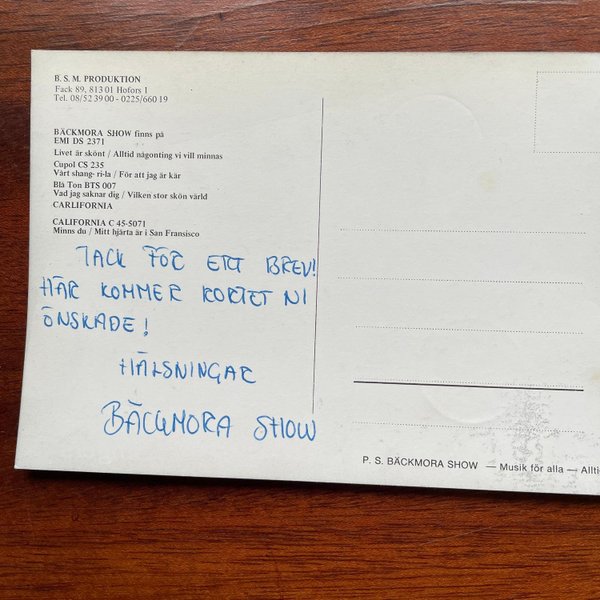 B. S. M. PRODUKTION
Fack 89, 813 01 Hofors 1
Tel. 08/52 39 00 - 0225/660 19
BÄCKMORA SHOW finns på
EMI DS 2371
Livet är skönt / Alltid någonting vi vill minnas
Cupol CS 235
Vårt shang- ri-la / För att jag är kär
Blå Ton BTS 007
Vad jag saknar dig / Vilken stor skön värld
CARLIFORNIA
CALIFORNIA C 45-5071
Minns du / Mitt hjärta är i San Fransisco
TACK FÖR ERT BREV!
HÄR KOMMER KORTET NI
ÖNSKADE!
HÄLSNINGAR
BÄCKMORA SHOW
P. S. BÄCKMORA SHOW — Musik för alla — Allti